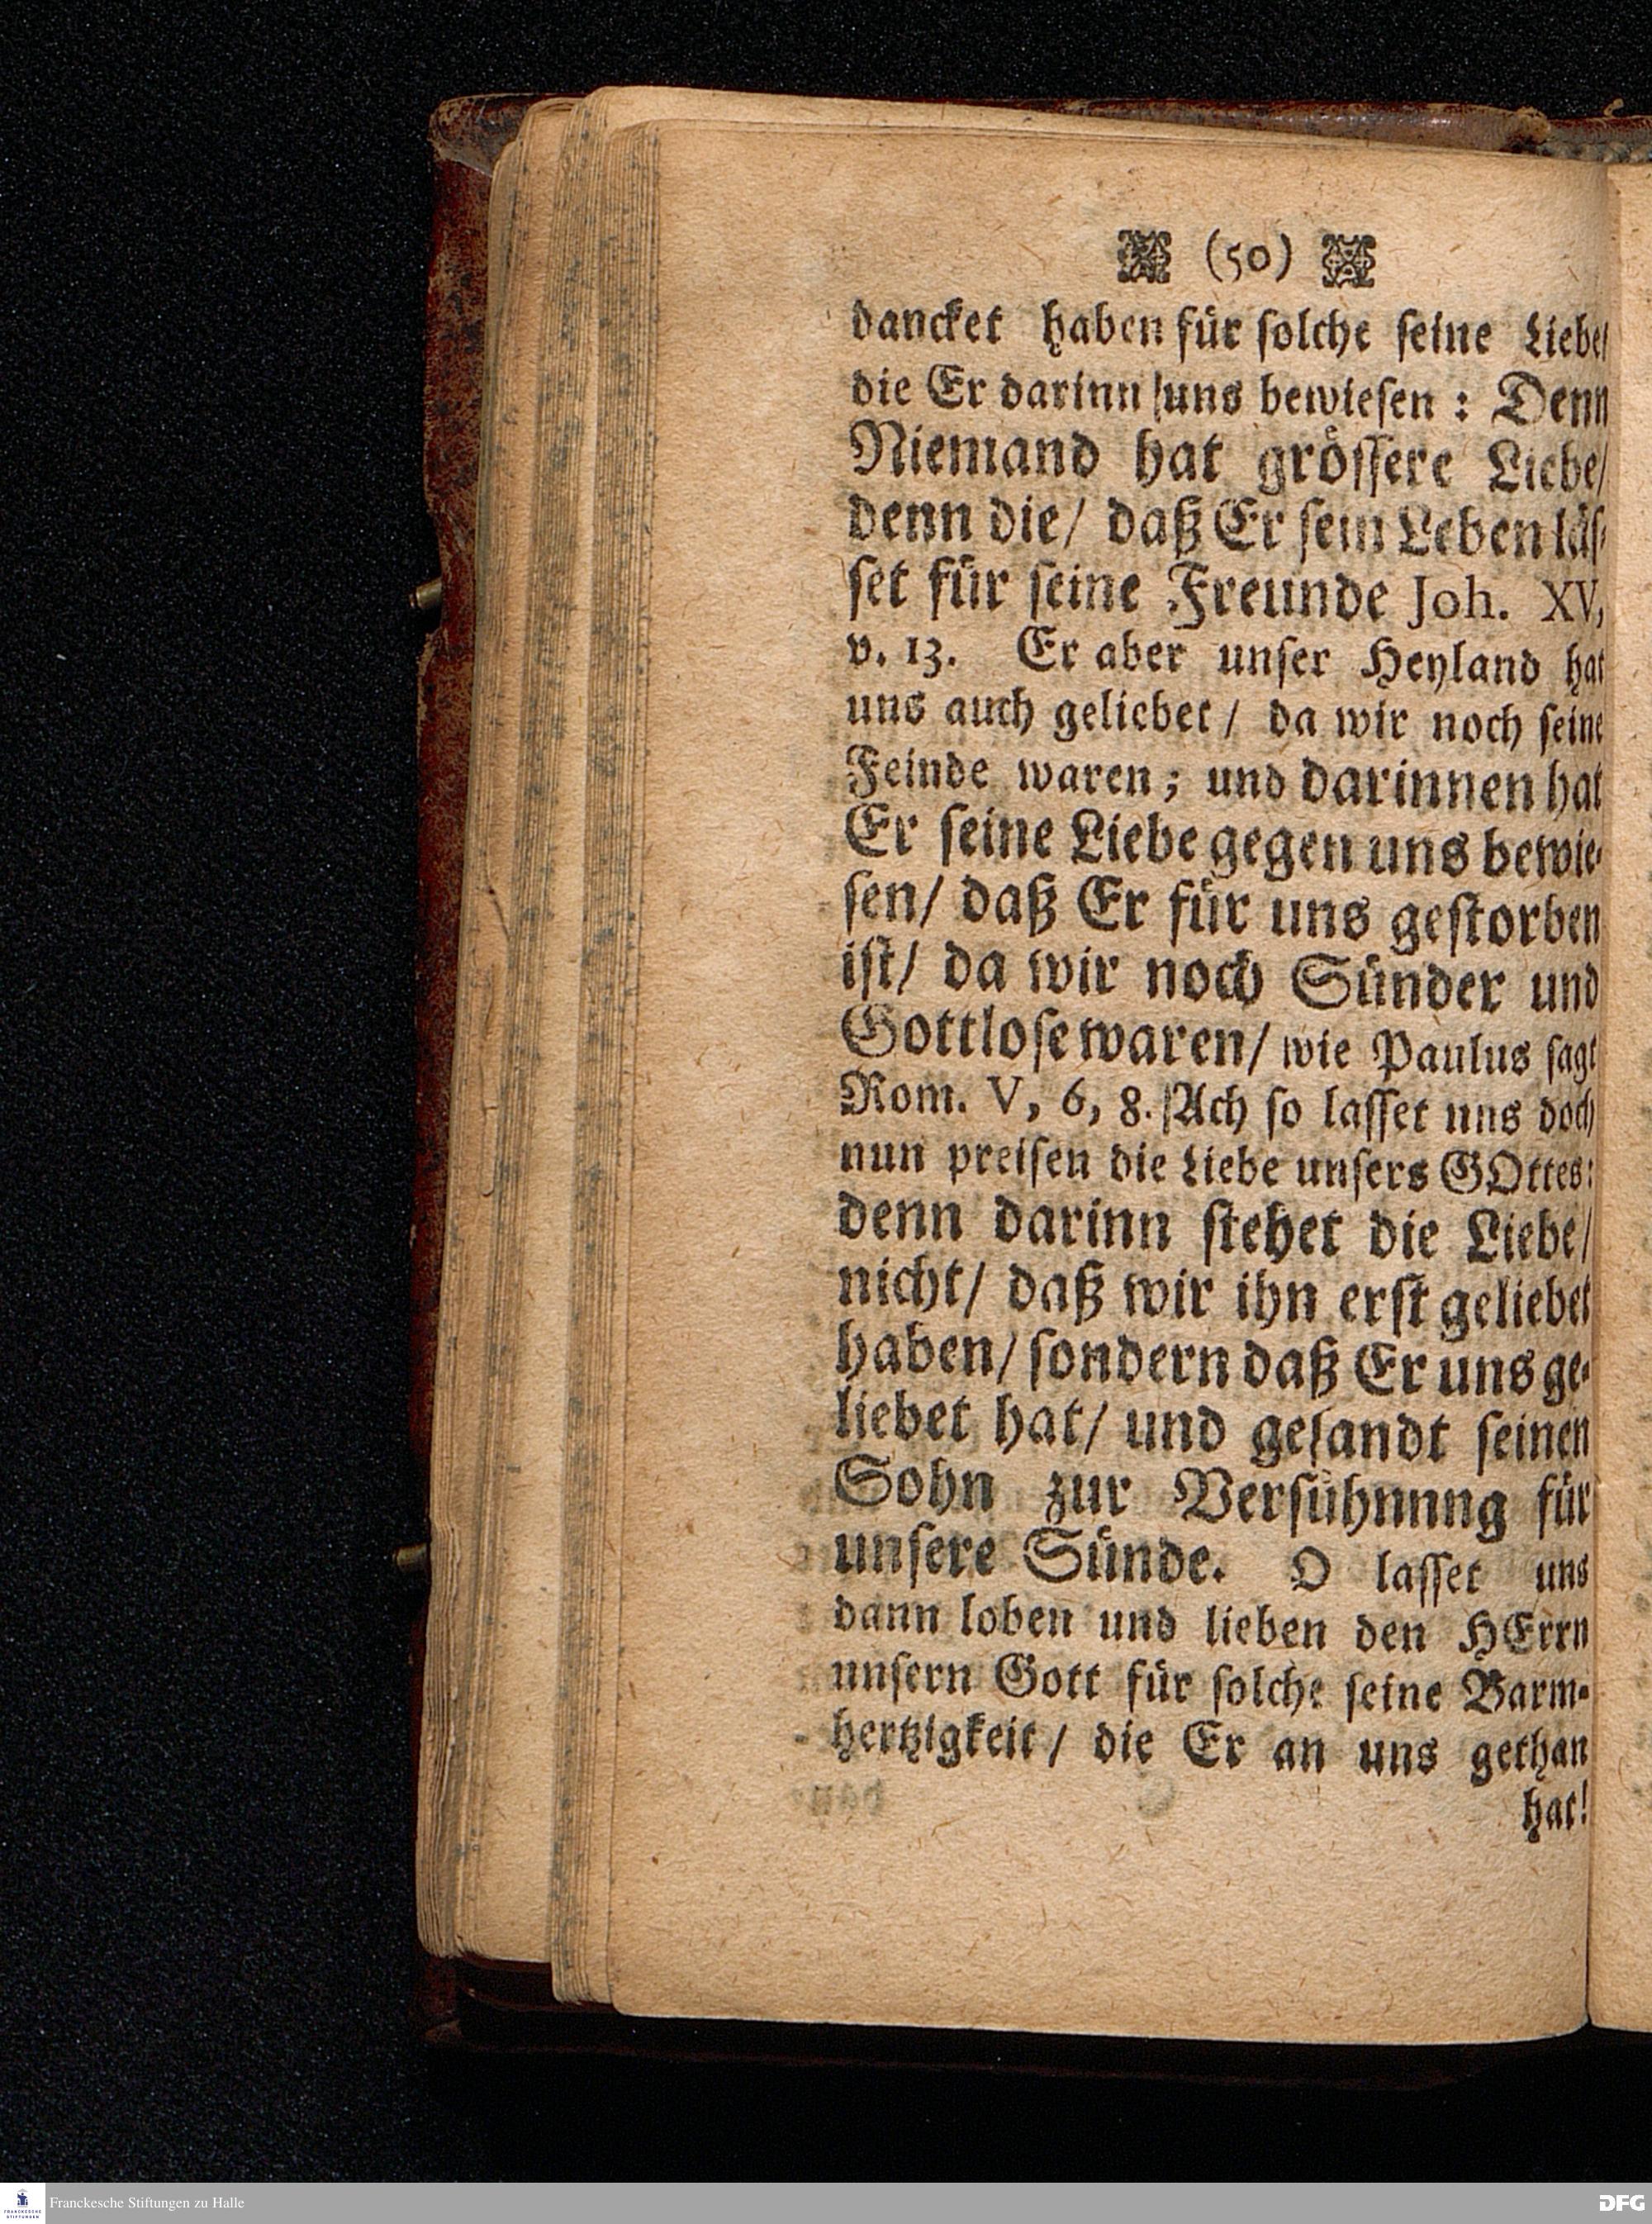 (50)
dancket haben für solche seine Liebe/
die Er darinn uns bewiesen: Denn
Niemand hat grössere Liebe/
denn die/ daß Er sein Leben läs-
set für seine Freunde Joh. XV,
v. 13. Er aber unser Heyland hat
uns auch geliebet/ da wir noch seine
Feinde waren; und darinnen hat
Er seine Liebe gegen uns bewie-
sen/ daß Er für uns gestorben
ist/ da wir noch Sünder und
Gottlose waren/ wie Paulus sagt
Rom. V, 6, 8. Ach so lasset uns doch
nun preisen die Liebe unsers GOttes:
denn darinn stehet die Liebe/
nicht/ daß wir ihn erst geliebet
haben/ sondern daß Er uns ge-
liebet hat/ und gesandt seinen
Sohn zur Versühnnng für
unsere Sünde. O lasset uns
dann loben und lieben den HErrn
unsern Gott für solche seine Barm-
hertzigkeit/ die Er an uns gethan
hat!
Franckesche Stiftungen zu Halle
DFG